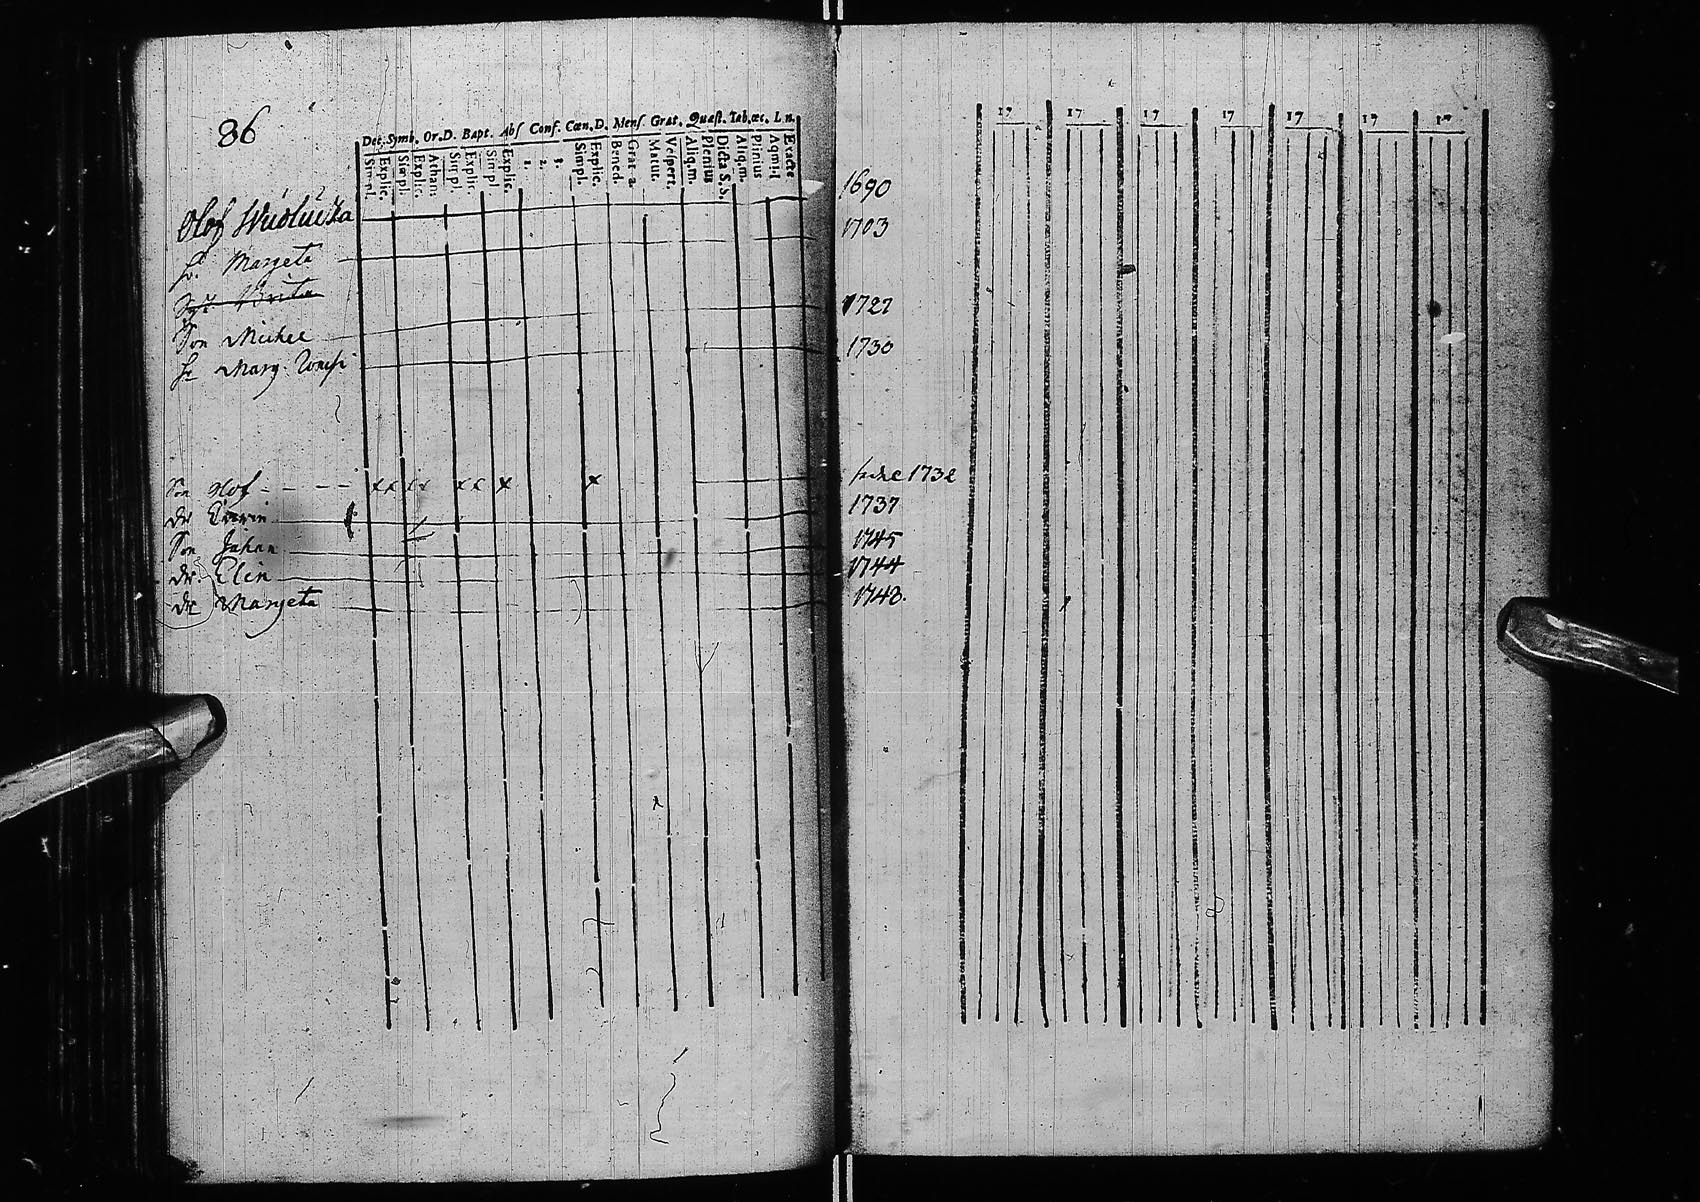 86
Dec. Symb. Or. D. Bapt. Abſ Conf. Cœn. D. Menſ. Grat. Quæſt. Tab. œc. L n.
Simpl. Explic. Simpl. Explic. Athan. Simpl. Explic. Simpl Explic. 1. 2. 3. Simpl. Explic. Bened. Grat. a. Matut. Veſpert. Aliq. m. Plenius Dicta S. S. Aliq. m. Plenius Exacte
17 17 17 17 17 17 17
Olof 1690
hu. Margeta 1703
Brita
Son Michel 1727
hu Marg. 1730
Son Olof x x x x x x x x 1732
dr 1737
Son Johan 1745
dr. Elin 1744
dr Margeta 1748.